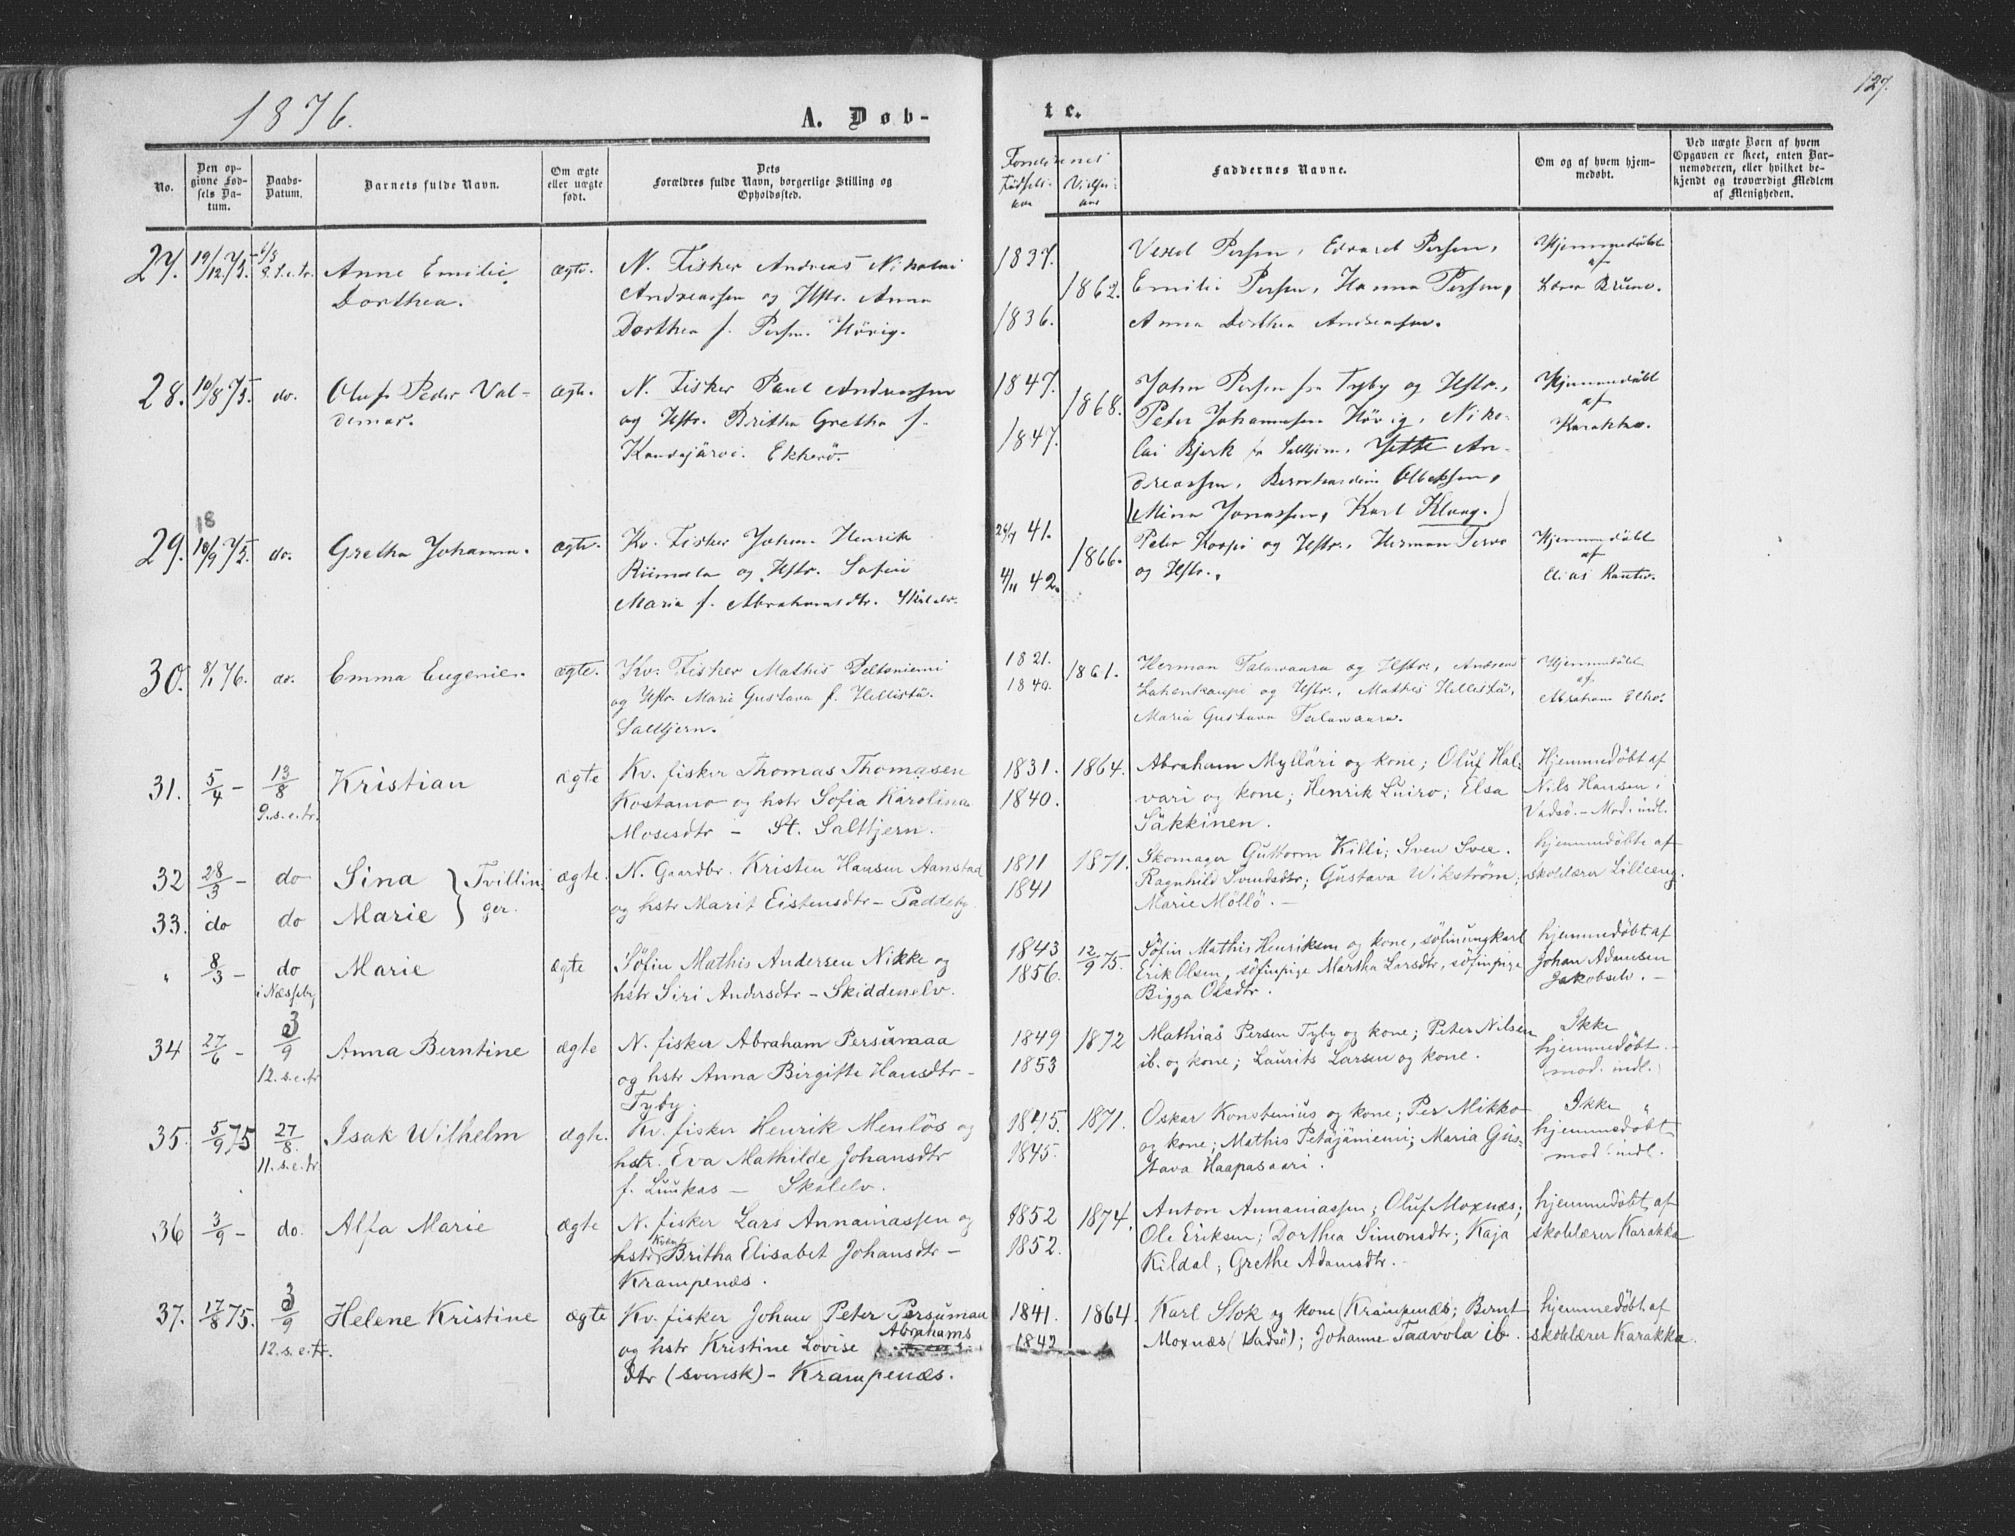 1876.
A. Døb-
te.
127.
No.
Den op-
givne Fød-
sels Da-
tum.
Daabs-
Datum.
Barnets fulde Navn.
Om ægte
eller uægte
født.
Dets
Forældres fulde Navn, borgerlige Stilling og
Opholdssted.
Forældrenes
Fødsels-
aar
Vielses-
aar
Faddernes Navne.
Om og af hvem hjem-
medøbt.
Ved uægte Børn af hvem
Opgaven er skeet, enten Bar-
nemoderen, eller hvilket be-
kjendt og troværdigt Medlem
af Menigheden.
27. 19/12 75. 6/8 8.s.e.tr. Anne Emilie
Dorthea.
ægte.
N. Fisker Andreas Nikolai
Andreassen og Hstr. Anna
Dorthea f. Persen. Høvig.
1837.
1836.
1862.
Vexel Persen, Edvard Persen,
Emilie Persen, Hanna Persen,
Anna Dorthea Andreassen.
Hjemmedøbt
af
Lærer Bruno.
28. 10/8 75. do. Oluf Peder Val-
demar.
ægte.
N. Fisker Paul Andreassen
og Hstr. Britha Gretha f.
Kandajärvi. Ekkerö.
1847.
1847.
1868.
John Persen fra Tyby og Hstr.,
Peter Johannesen Høvig, Niko-
lai Bjerk fr Saltjern, Jette An-
dreassen, Bernhardine Olbeksen,
(Mina Jonassen, Karl Klong.)
Hjemmedøbt
af
Karakka.
29. 18
10/9 75. do. Gretha Johanna.
ægte.
Kv. Fisker Johan Henrik
Riimala og Hstr. Sofia
Maria f. Abrahamsdtr. Skålelv.
24/4 41.
4/11 42.
1866.
Peter Koopi og Hstr., Herman Tervo
og Hstr.,
Hjemmedøbt
af
Elias Rantio.
30. 8/1 76. do. Emma Eugenie.
ægte.
Kv. Fisker Mathis Peltoniemi
og Hstr. Marie Gustava f. Hellistä.
Saltjern.
1821.
1840.
1861.
Herman Talawaara og Hstr., Andreas
Lahenkaupi og Hstr., Mathis Hellistä,
Maria Gustava Talawaara.
Hjemmedøbt
af
Abraham Elho.
31. 5/4 - 13/8
9.s.e.tr. Kristian
ægte
Kv. fisker Thomas Thomasen
Kostamo og hstr Sofia Karolina
Mosesdtr - St. Saltjern.
1831.
1840.
1864.
Abraham Mylläri og kone; Oluf Hal-
vari og kone; Henrik Luiro; Elsa
Säkkinen.
Hjemmedøbt af
Nils Hansen,
Vadsø. - Mod. indl.
32 28/3 - do Sina } Tvillin-
33. do do Marie } ger.
ægte.
N. Gaardbr. Kristen Hansen Aanstad
og hstr Marit Eistensdtr - Paddeby.
1811
1841
1871.
Skomager Guttorm Killi; Sven Svee.
Ragnhild Svendsdtr; Gustava Wikström;
Marie Möllö. -
hjemmedøbte af
skolelærer Lilleeng.
" 8/3 - do
i Næsseby Marie
ægte
Søfin Mathis Andersen Nikke og
hstr Siri Andersdtr - Skiddenelv.
1843
1856.
12/9 75.
Søfin Mathis Henriksen og kone, søfinungkarl
Erik Olsen, søfinpige Martha Larsdtr, søfinpige
Bigga Olsdtr.
hjemmedøbt af
Johan Adamsen
Jakobselv. -
34 27/6 - 3/9
12.s.e.tr Anna Berntine
ægte
N. fisker Abraham Persumaa
og hstr Anna Birgitte Hansdtr -
Tyby.
1849
1853
1872
Mathias Persen Tyby og kone; Peter Nilsen
ib. og kone; Laurits Larsen og kone.
Ikke
hjemmedøbt.
mod. indl.
35. 5/9 75 27/8.
11.s.e.tr Isak Wilhelm
ægte.
Kv. fisker Henrik Menlös og
hstr. Eva Mathilde Johansdtr
f. Luukas - Skalelv.
1845.
1845.
1871.
Oskar Konstenius og kone; Per Mikko
og kone; Mathis Petäjäniemi; Maria Gus-
tava Haapasaari.
Ikke
hjemmedøbt
mod. indl.
36 3/9 - do. Alfa Marie
ægte
N. fisker Lars Annaniassen og
hstr Kven Britha Elisabet Johansdtr -
Krampenæs.
1852
1852.
1874.
Anton Annaniassen; Oluf Moxnæs;
Ole Eriksen; Dorthea Simonsdtr; Kaja
Kildal; Grethe Adamsdtr.
hjemmedøbt af
skolelærer Karakka
37. 17/8 75. 3/9
12.s.e.tr. Helene Kristine
ægte
Kv. fisker Johan Peter Persumaa
og hstr Kristine Lovise Abrahams
dtr (svensk) - Krampenæs.
1841.
1842
1864
Karl Stok og kone (Krampenæs; Bernt
Moxnæs (Vadsø); Johanne Tadvola ib.
hjemmedøbt af
skolelærer Karakka